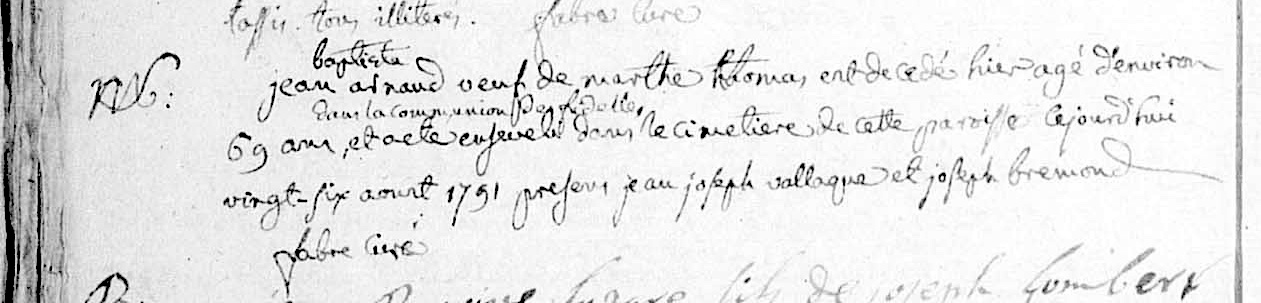 tassis. tous illiterés. fabre curé
baptiste
jean arnaud veuf de marthe thomas est decedé hier agé d'environ
dans la communion des fidelles
69 ans, et a eté enseveli dans le cimetiere de cette paroisse cejourd'hui
vingt-six aoust 1791 presens jean joseph vallaque et joseph bremond
fabre curé
fils de joseph Gombert